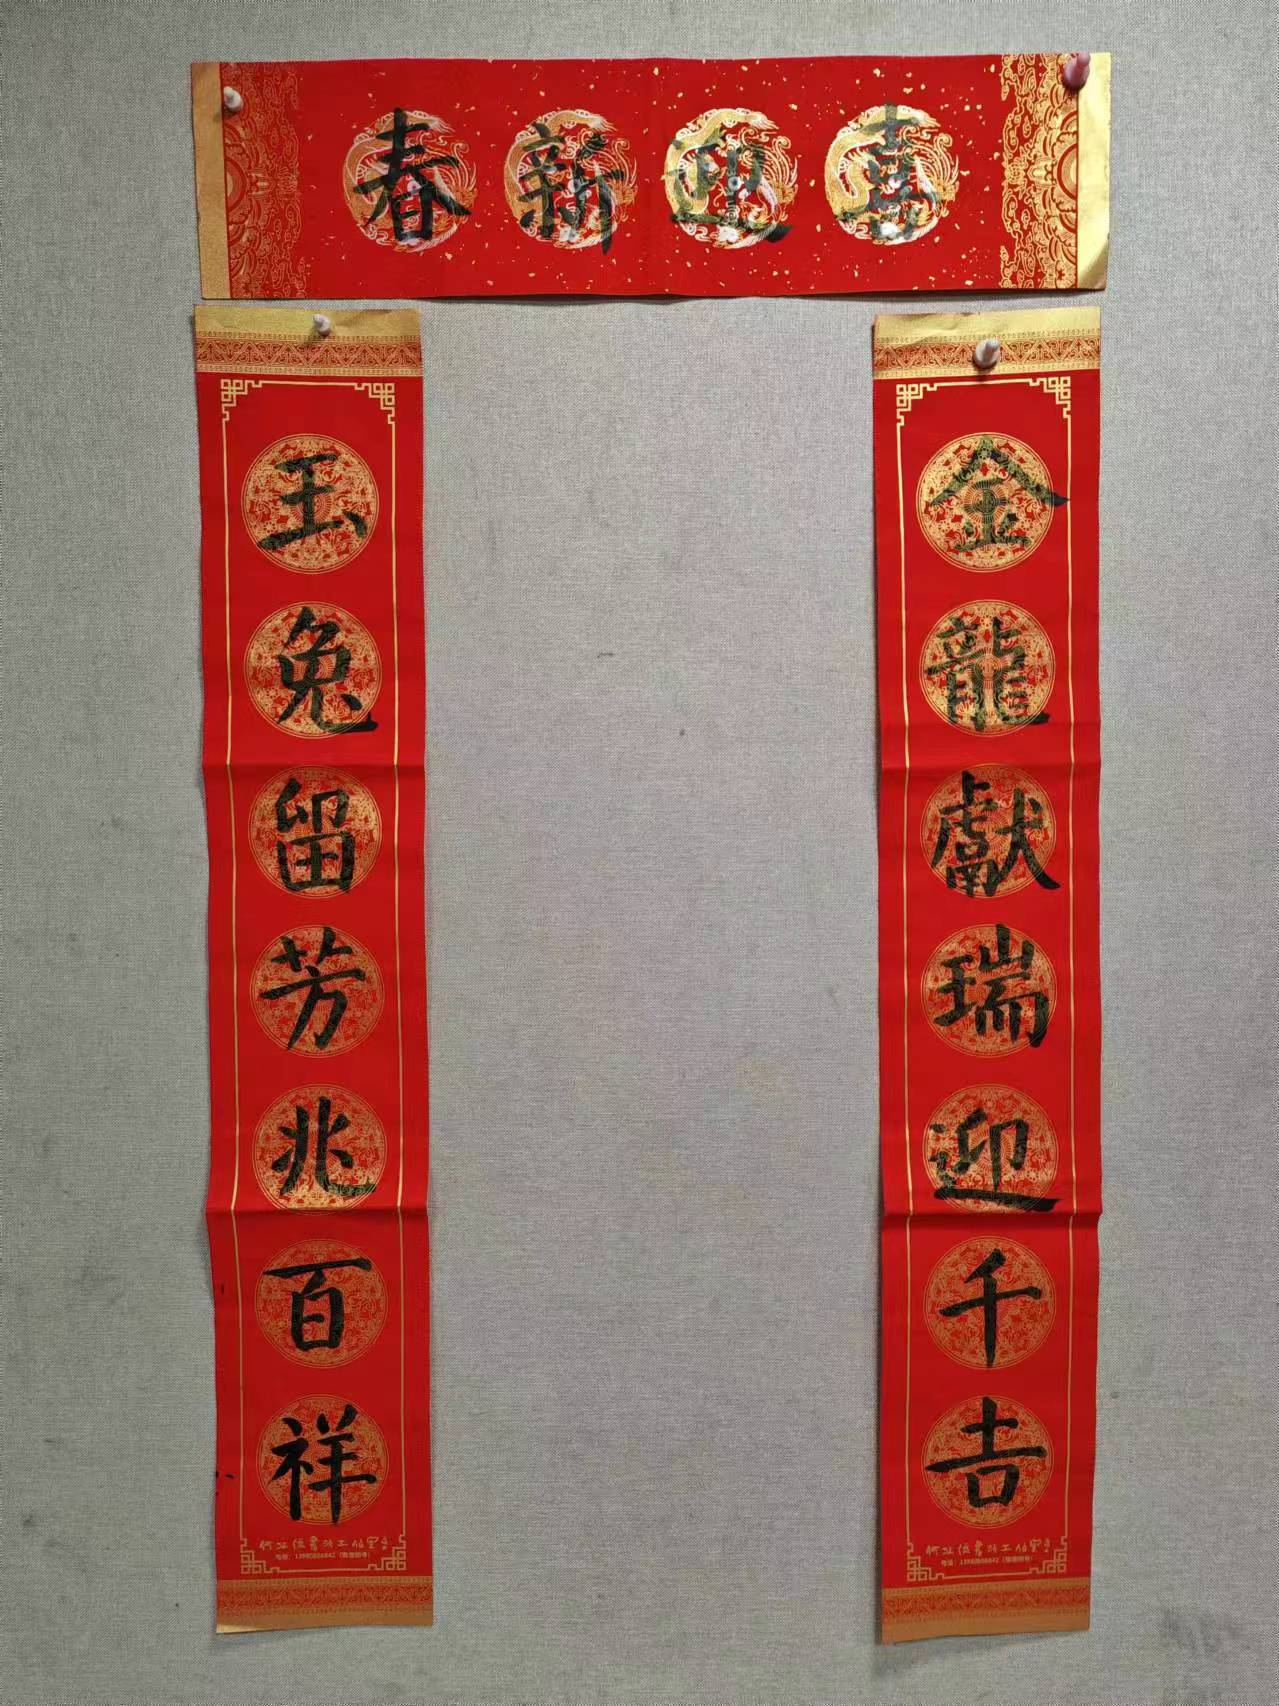 喜迎新春
金龍獻瑞迎千吉
玉兔留芳兆百祥